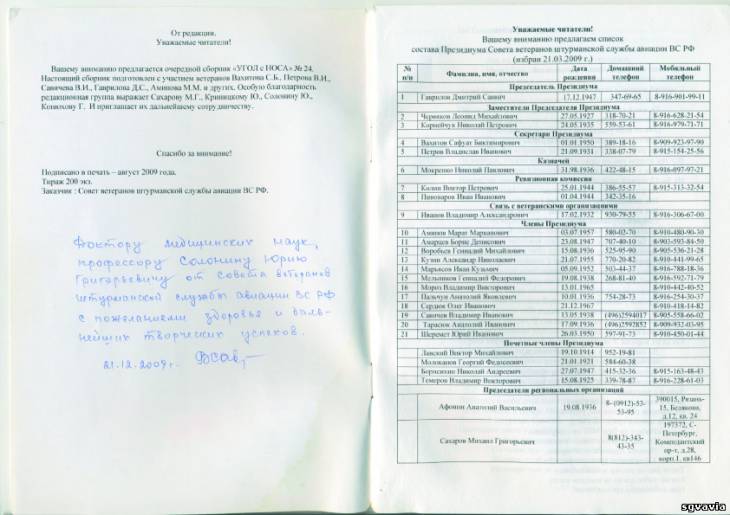 От редакции.
Уважаемые читатели!
Вашему вниманию предлагается очередной сборник «УГОЛ с НОСА» № 24.
Настоящий сборник подготовлен с участием ветеранов Вахитова С.Б., Петрова В.И.,
Савичева В.И., Гаврилова Д.С., Аминова М.М. и других. Особую благодарность
редакционная группа выражает Сахарову М.Г., Криницкому Ю., Солонину Ю.,
Конюхову Г. И приглашает их дальнейшему сотрудничеству.
Спасибо за внимание!
Подписано в печать – август 2009 года.
Тираж 200 экз.
Заказчик : Совет ветеранов штурманской службы авиации ВС РФ.
Доктору медицинских наук,
профессору Солонину Юрию
Григорьевичу от Совета ветеранов
штурманской службы авиации ВС РФ
с пожеланиями здоровья и даль-
нейших творческих успехов.
21.12.2009г.
Уважаемые читатели!
Вашему вниманию предлагаем список
состава Президиума Совета ветеранов штурманской службы авиации ВС РФ
(избран 21.03.2009 г.)
№ п/п Фамилия, имя, отчество Дата рождения Домашний телефон Мобильный телефон
Председатель Президиума
1 Гаврилов Дмитрий Саввич 17.12.1947 347-69-65 8-916-901-99-11
Заместители Председателя Президиума
2 Червяков Леонид Михайлович 27.05.1927 318-70-21 8-916-628-21-54
3 Корнейчук Николай Петрович 24.05.1935 559-53-61 8-916-979-71-71
Секретари Президиума
4 Вахитов Сифуат Биктимирович 01.01.1950 389-18-16 8-909-923-97-90
5 Петров Владислав Иванович 21.09.1931 338-07-79 8-915-154-25-56
Казначей
6 Мокренко Николай Павлович 31.98.1936 422-48-15 8-916-097-97-21
Ревизионная комиссия
7 Калин Виктор Петрович 25.01.1944 386-55-57 8-915-313-32-54
8 Пивоваров Иван Иванович 01.04.1944 342-35-16
Связь с ветеранскими организациями
9 Иванов Владимир Александрович 17.02.1932 930-79-55 8-916-306-67-00
Члены Президиума
10 Аминов Марат Марканович 03.07.1957 580-02-70 8-910-480-90-30
11 Амарцев Борис Денисович 23.08.1947 707-40-10 8-903-593-84-50
12 Воробьев Геннадий Михайлович 15.08.1936 525-95-90 8-905-536-21-28
13 Кузин Александр Николаевич 21.07.1955 770-20-82 8-910-441-99-65
14 Марьясов Иван Кузьмич 05.09.1952 503-44-37 8-916-788-18-36
15 Мельников Геннадий Федорович 19.08.1938 268-81-40 8-916-592-71-79
16 Мороз Владимир Викторович 13.01.1965 8-910-442-40-52
17 Пальчук Анатолий Яковлевич 10.01.1936 754-28-73 8-916-254-30-37
18 Сердюк Олег Иванович 21.12.1967 8-910-418-14-82
19 Савичев Владимир Иванович 13.05.1938 (496)2594017 8-905-558-66-02
20 Тарасюк Анатолий Иванович 17.09.1936 (496)2592852 8-909-932-03-95
21 Шеремет Юрий Иванович 26.03.1950 597-91-73 8-910-450-01-44
Почетные члены Президиума
Лавский Виктор Михайлович 19.10.1914 952-19-81
Молоканов Георгий Федосеевич 21.01.1921 584-60-38
Николай Андреевич 27.07.1947 415-32-36 8-915-163-48-43
Темеров Владимир Викторович 15.08.1925 339-78-87 8-916-228-61-03
Председатели региональных организаций
Афонин Анатолий Васильевич 19.08.1936 8-(0912)-53-53-95 390015, Рязань-15, Белякова, д.12, кв. 24
Сахаров Михаил Григорьевич 8(812)-343-43-35 197372, С-Петербург, Комендантский пр-т, д.28, корп.1. кв146
sgvavia